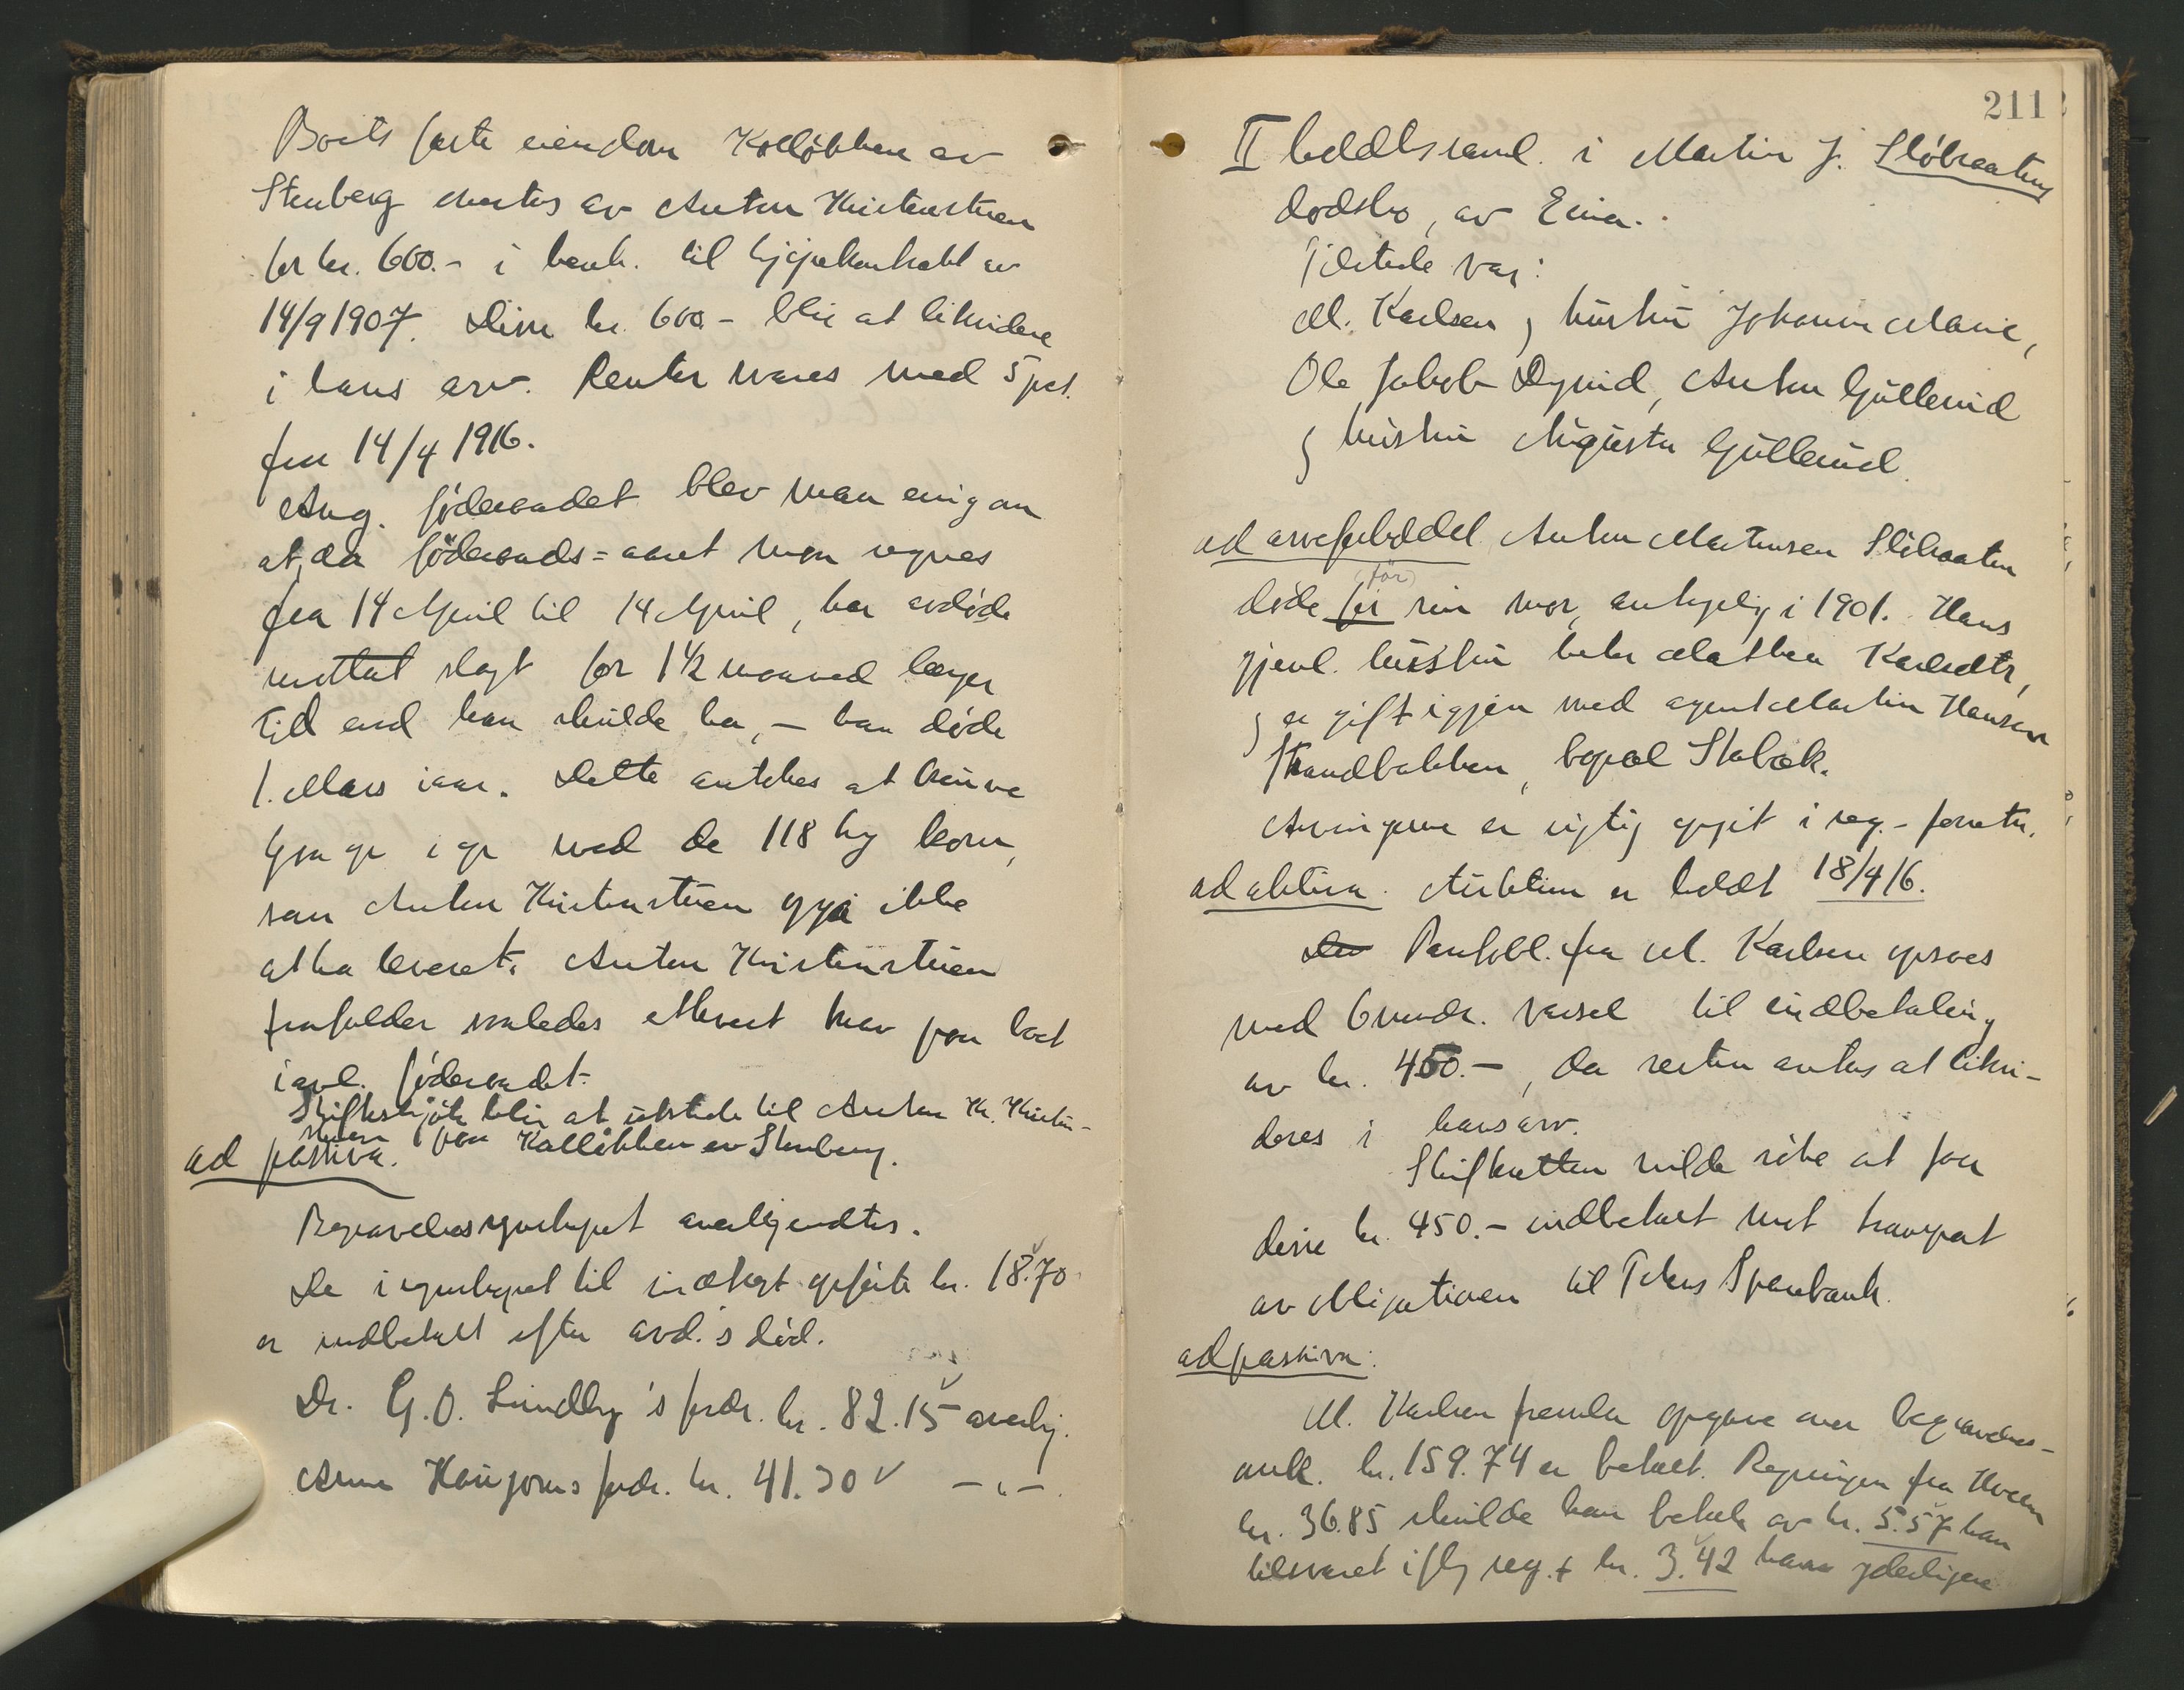 Boets faste eiendom Kolløkken av
Stenberg overtas av Anton Kristenstuen
for kr. 600.- i henh. til kjøpekontrakt av
14/9 1907. Disse kr. 600.- blir at likvidere
i hans arv. Renter svares med 5 pct.
fra 14/4 1916.
Ang. föderaadet blev man enig om
at, da föderaads-aaret maa regnes
fra 14 April til 14 April, har avdöde
mottat slagt for 1 1/2 maaned længer
tid end han skulde ha, - han døde
1. Mars iaar. Dette antokes at kunne
gaa op i op med de 118 kg korn,
som Anton Kristenstuen opgá ikke
at ha leveret. Anton Kristenstuen
frafalder saaledes ethvert krav paa boet
i anl. föderaadet.
Skifteskjöte blir at utstede til Anton K. Kristen-
stuen paa Kolløkken av Stenberg.
ad passiva.
Begravelsesregnskapet anerkjendtes.
De i regnskapet til indtægt opførte kr. 18.70
er indbetalt efter avd.s död.
Dr. G. O. Lundby's fordr. kr. 82.15 anerkj.
Arne Haugoms fordr. kr. 41.30 -"-.
211
II behdlsaml. i Martin J. Slóbraatens
dødsbo, av Eina.
Tilstede var:
M. Karlsen og hustru Johanne Marie,
Ole Jakob Dyrud, Anton Gullerud
og hustru Augusta Gullerud.
ad arveforholdet Anton Martinsen Slóbraaten
døde før (før) sin mor, antagelig i 1901. Hans
gjenl. hustru heter Mathea Karlsdtr,
og er gift igjen med agent Martin Hansen
Strandbakken, bopæl Stabæk.
Arvingerne er rigtig opgit i reg.-forretn.
ad aktiva. Auktion er holdt 18/4 16.
Den Pantobl. fra M. Karlsen opsaes
med 6 mndr. varsel til indbetaling
av kr. 450.-, da resten antas at likvi-
deres i hans arv.
Skifteretten vilde søke at faa
disse kr. 450.- indbetalt mot transport
av obligationen til Totens Sparebank.
ad passiva:
M. Karlsen fremla opgave over begravelses-
omk. kr. 159.74 er betalt. Regningen fra Hveem
kr. 36.85 skulde han betale av kr. 5.57 han
tilsvaret iflg reg. + kr. 3.42 hans yderligere